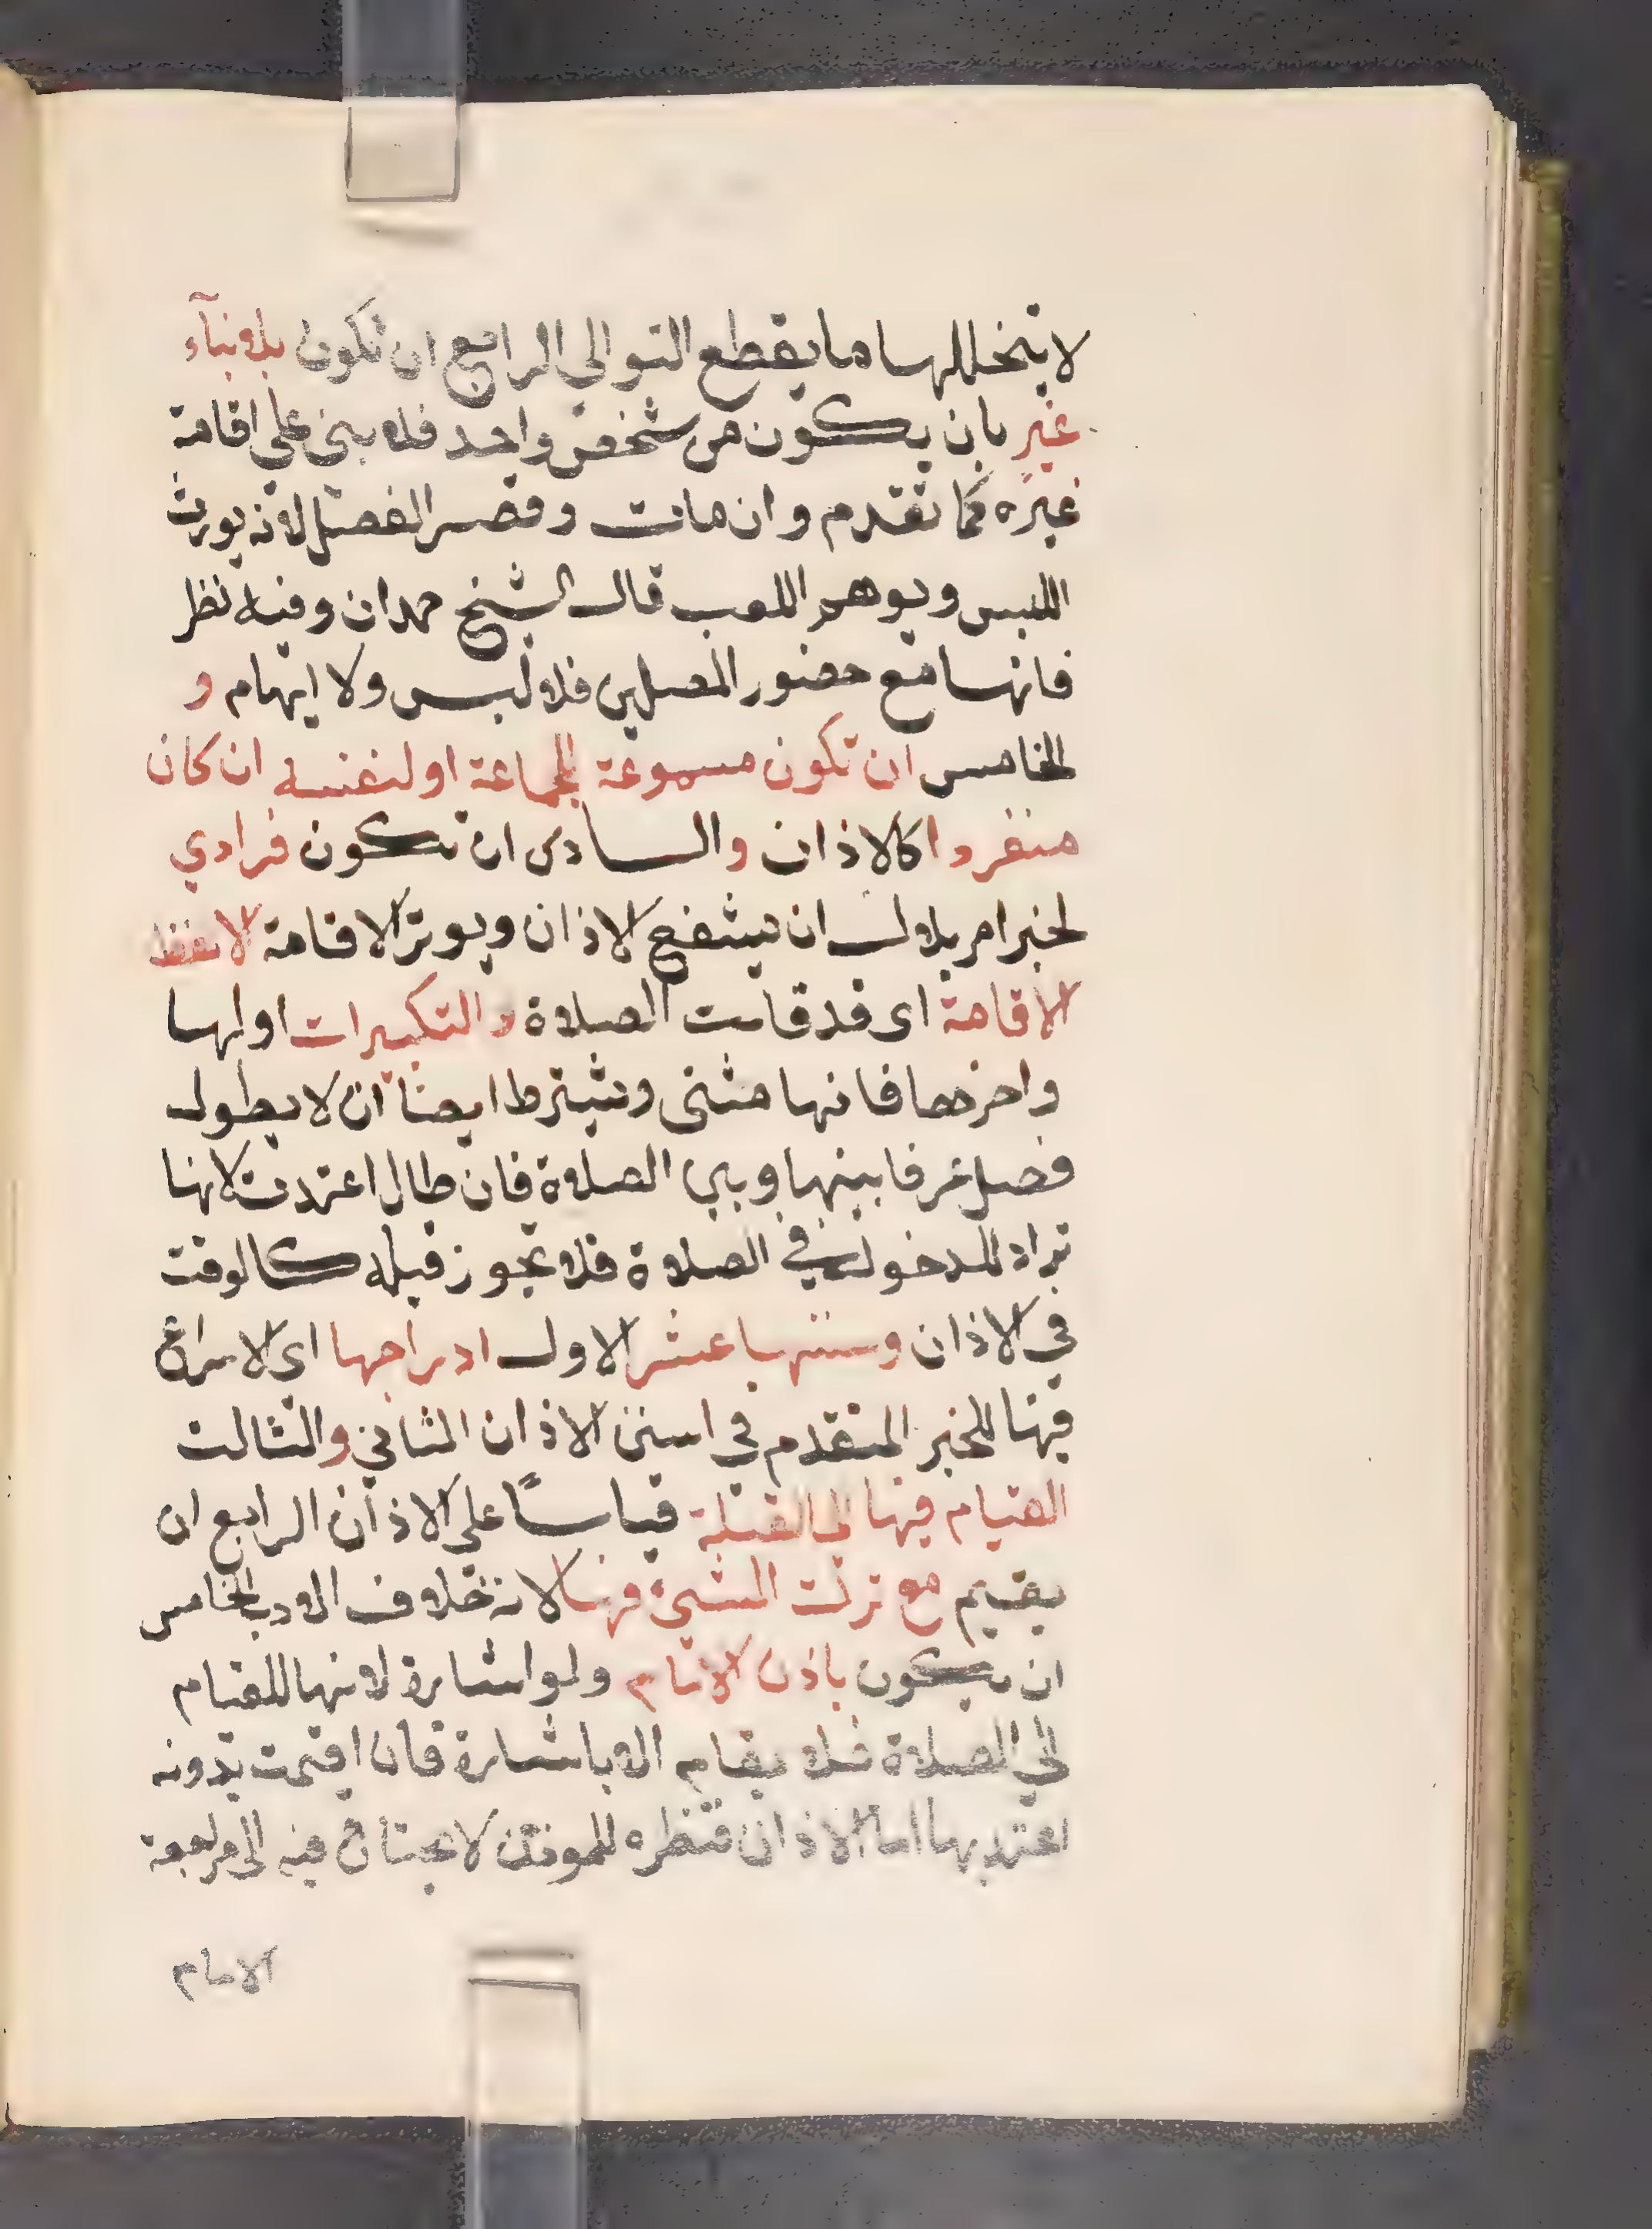 لا يتخللها ما يقطع التوالي الرابع ان تكون بلا بناء
غير بان يكون من شخص واحد فلا يبنى علي اقامة
غيره كما تقدم وان مات وقصر الفصل لانه يورث
اللبس ويوهم اللعب قال الشيخ حمدان وفيه نظر
فانها مع حضور المصلين فلا لبس ولا ايهام و
الخامس ان تكون مسموعة للجماعة او لنفسه ان كان
منفردا كالاذان والسادس ان تكون فرادي
لخبر امر بلال ان يشفع الاذان ويوتر الاقامة لا لفظ
الاقامة اى قد قامت الصلاة والتكبيرات اولها
واخرها فانها مثنى ويشترط ايضا ان لا يطول
فصل عرفا بينها وبين الصلاة فان طال اعتدت لانها
تراد للدخول في الصلاة فلا تجوز قبله كالوقت
في الاذان وسننها عشر الاول ادراجها اى الاسراع
فيها للخبر المتقدم في اسنن الاذان الثاني والثالث
القيام فيها الى القبلة قياسًا علي الاذان الرابع ان
يقيم مع ترك المشيء فيها لانه خلاف الادب الخامس
ان يكون باذن الامام ولو اشارة لانها للقيام
الي الصلاة فلا يقام الا باشارة فان اقيمت بدونه
اعتد بها اما الاذان فنظره للموذن لا يحتاج فيه الى مراجعة
الامام